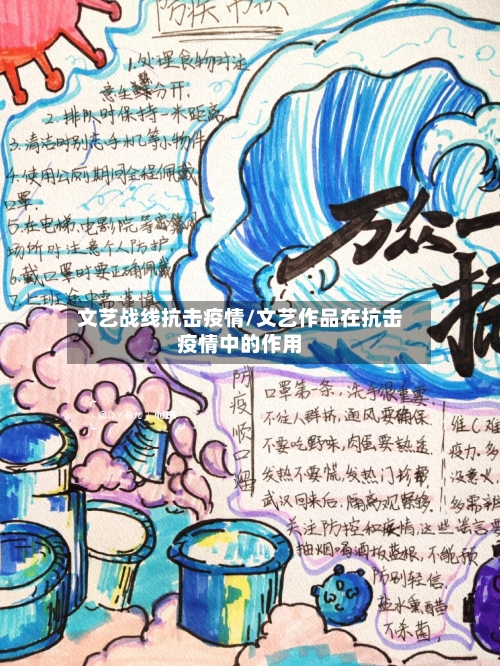 防疾常识
1.处理食物时注
意生熟分开.
2.排队时保持一米距离
3.清洁时别忘手机等小物件
4.使用公厕期间全程佩戴
口罩.
5.在电梯、电影院等
场所时注意个人防护
6.戴口罩时要正确佩戴
7.上班途中需谨慎
万众一
文艺战线抗击疫情/文艺作品在抗击
疫情中的作用
防疫顺口溜
口罩第一条,洗手很重要.
不往人群挤,通风要确保.
不要吃野味,肉蛋要熟透.
发热不要慌,发热门诊
武汉回来后,隔离观察够.
关注防控和疫情,这些谣言
抽烟喝酒板蓝根,不能预
防别轻信.
盐水熏醋
不杀菌,
维C难
疫力.多
没意义
多需